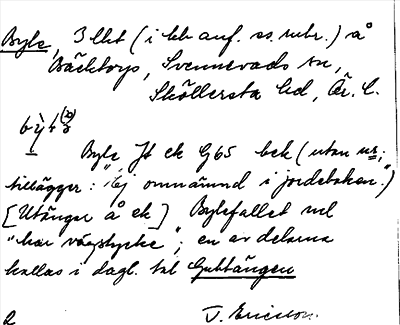 Byle, 3 lht (i kb anf. ss. rubr.) å
Bäcktorps, Svennevads sn,
Sköllersta hd, Ör. l.
Byle Jt ek G65 bek (utan nr;
tillägger: "Ej omnämnd i jordeboken.")
[Utängar å ek] Bylefallet vel
"har vägstycke"; en av delarna
kallas i dagl. tal Gubbängen
J. Ericson.